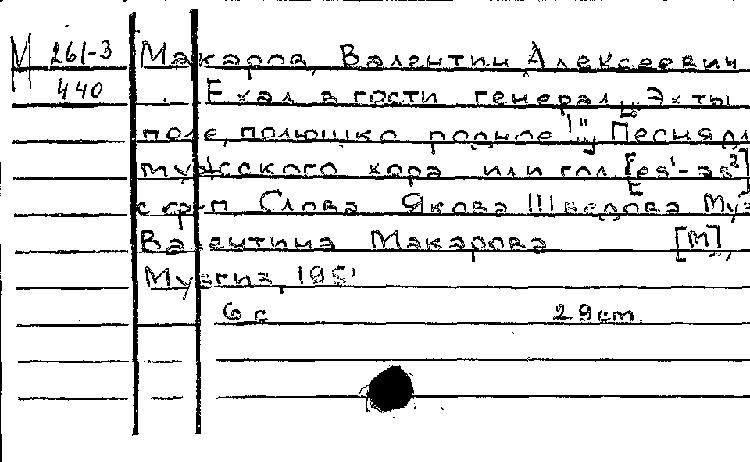 М 261-3 Макаров, Валентин Алексеевич
440 Ехал в гости генерал, "Эх ты
поле, полюшко родное!", Песня для
мужского хора или гол. [es¹-as²]
с ф-п. Слова Якова Шведова Муз
Валентина Макарова [М],
Музгиз, 195
6 с 29cm